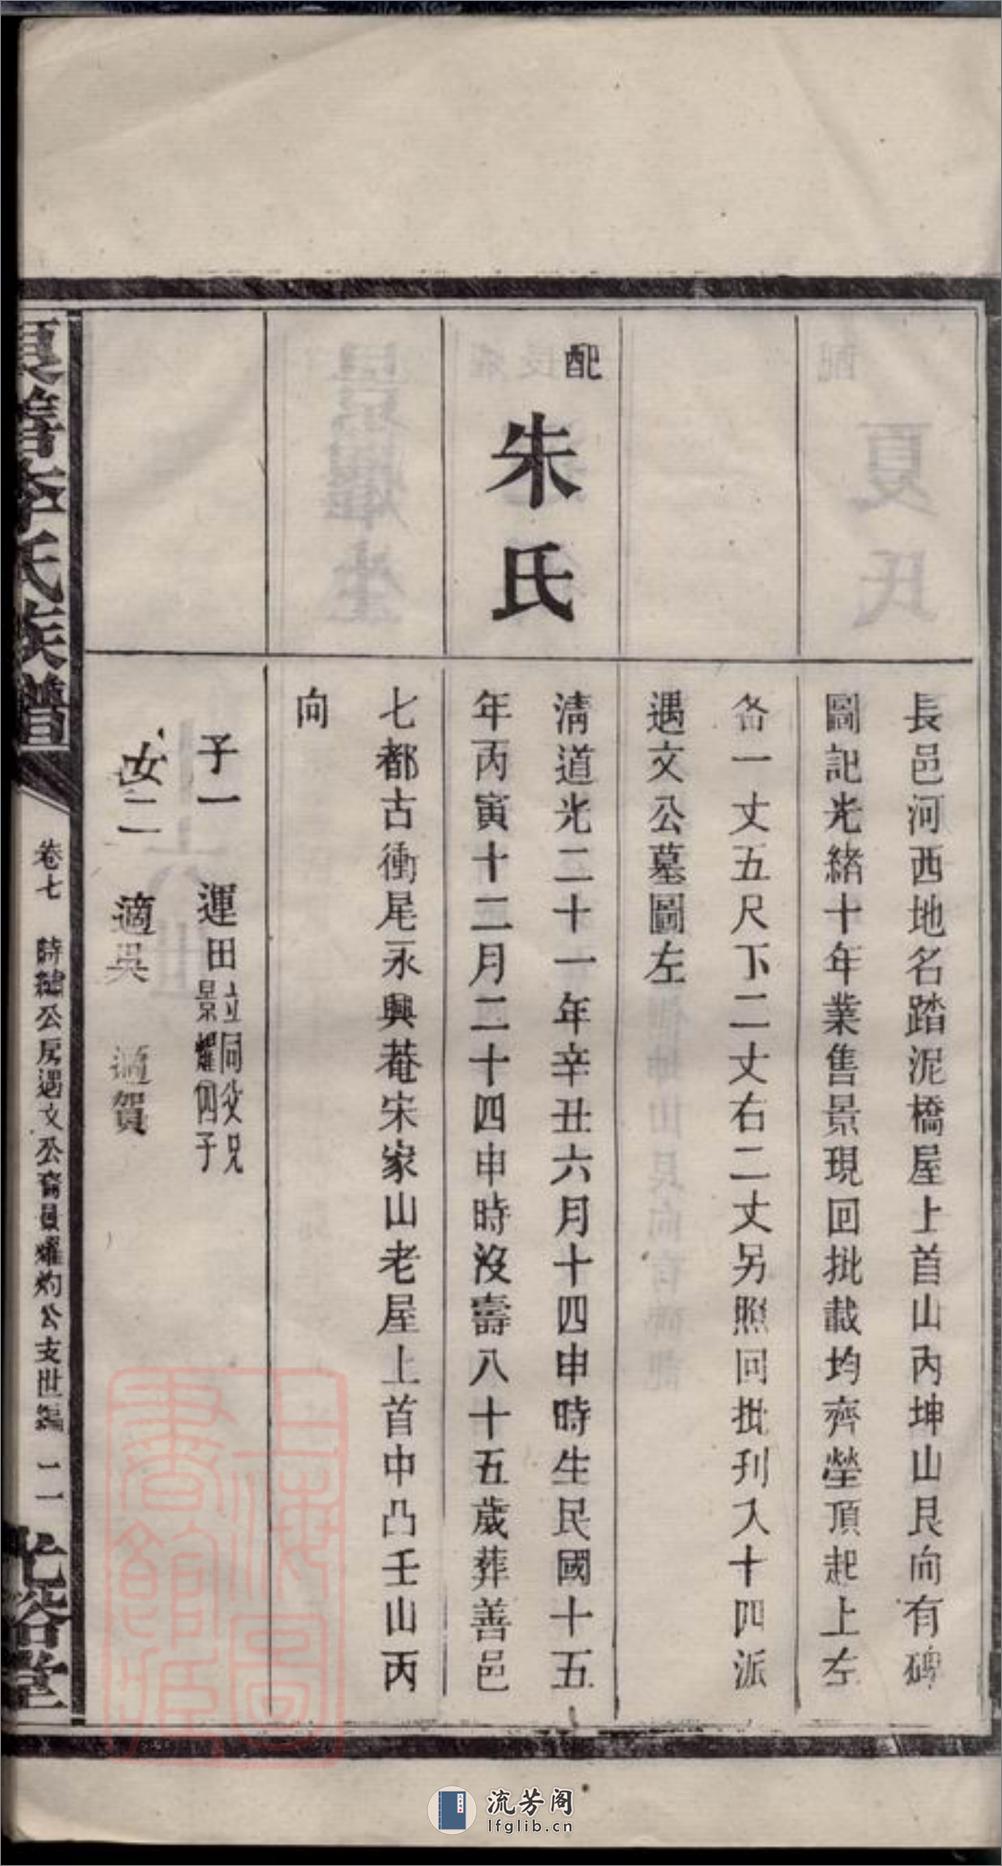 長邑河西地名踏泥橋屋上首山內坤山艮向有碑
圖記光緒十年業售景現回批載均齊塋頂起上左
各一丈五尺下二丈右二丈另照回批刋入十四派
遇文公墓圖左
配
朱氏
淸道光二十一年辛丑六月十四申時生民國十五
年丙寅十二月二十四申時沒壽八十五歲葬善邑
七都古衝尾永興菴宋家山老屋上首中凸壬山丙
向
子一 運田 立同父兄
景耀四子
女二 適吳 適賀
善李氏族譜
卷七
公房遇文公裔耀灼公支世編
二一
光裕堂
上海圖
書館藏
流芳阁
lfglib.cn